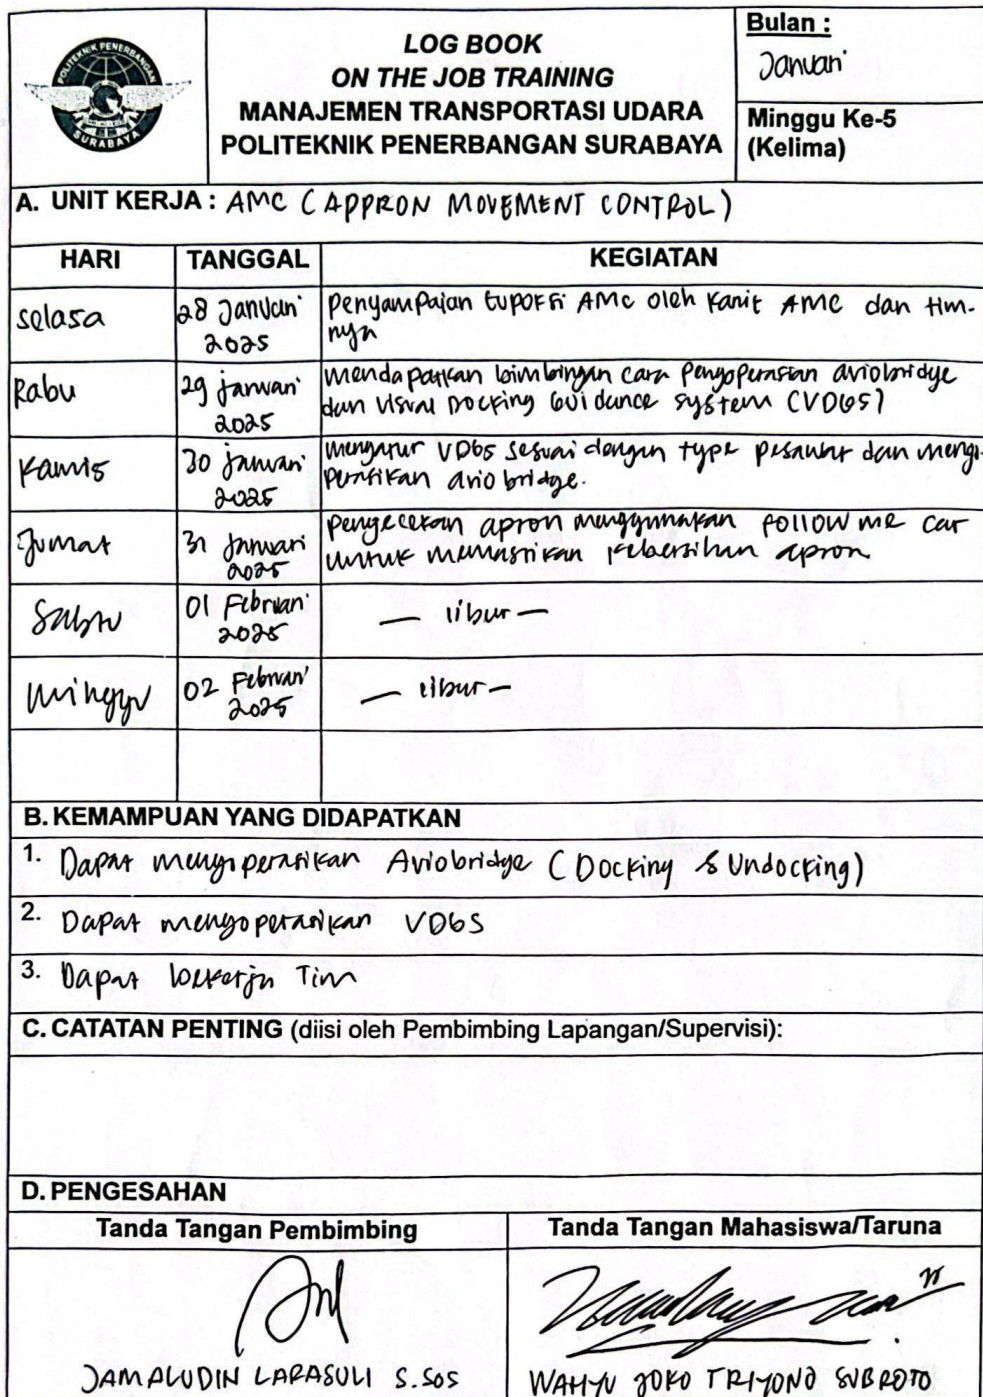 POLITEKNIK PENERBANGAN
SURABAYA
LOG BOOK
ON THE JOB TRAINING
MANAJEMEN TRANSPORTASI UDARA
POLITEKNIK PENERBANGAN SURABAYA
Bulan :
Januari
Minggu Ke-5
(Kelima)
A. UNIT KERJA : AMC (APPRON MOVEMENT CONTROL)
HARI TANGGAL KEGIATAN
selasa 28 Januari 2025 penyampaian tupoksi AMC oleh Kanit AMC dan tim-
nya
Rabu 29 januari 2025 mendapatkan bimbingan cara pengoperasian aviobridge
dan Visual Docking Guidance system (VDGS)
Kamis 30 januari 2025 mengatur VDGS sesuai dengan type pesawat dan mengo-
perasikan avio bridge.
Jumat 31 Januari 2025 pengecekan apron menggunakan follow me car
untuk memastikan kebersihan apron
Sabtu 01 Februari 2025 — libur —
minggu 02 Februari 2025 — libur —
B. KEMAMPUAN YANG DIDAPATKAN
1. Dapat mengoperasikan Aviobridge (Docking & Undocking)
2. Dapat mengoperasikan VDGS
3. Dapat bekerja Tim
C. CATATAN PENTING (diisi oleh Pembimbing Lapangan/Supervisi):
D. PENGESAHAN
Tanda Tangan Pembimbing Tanda Tangan Mahasiswa/Taruna
JAMALUDIN LARASULI S.SOS WAHYU JOKO TRIYONO SUBROTO